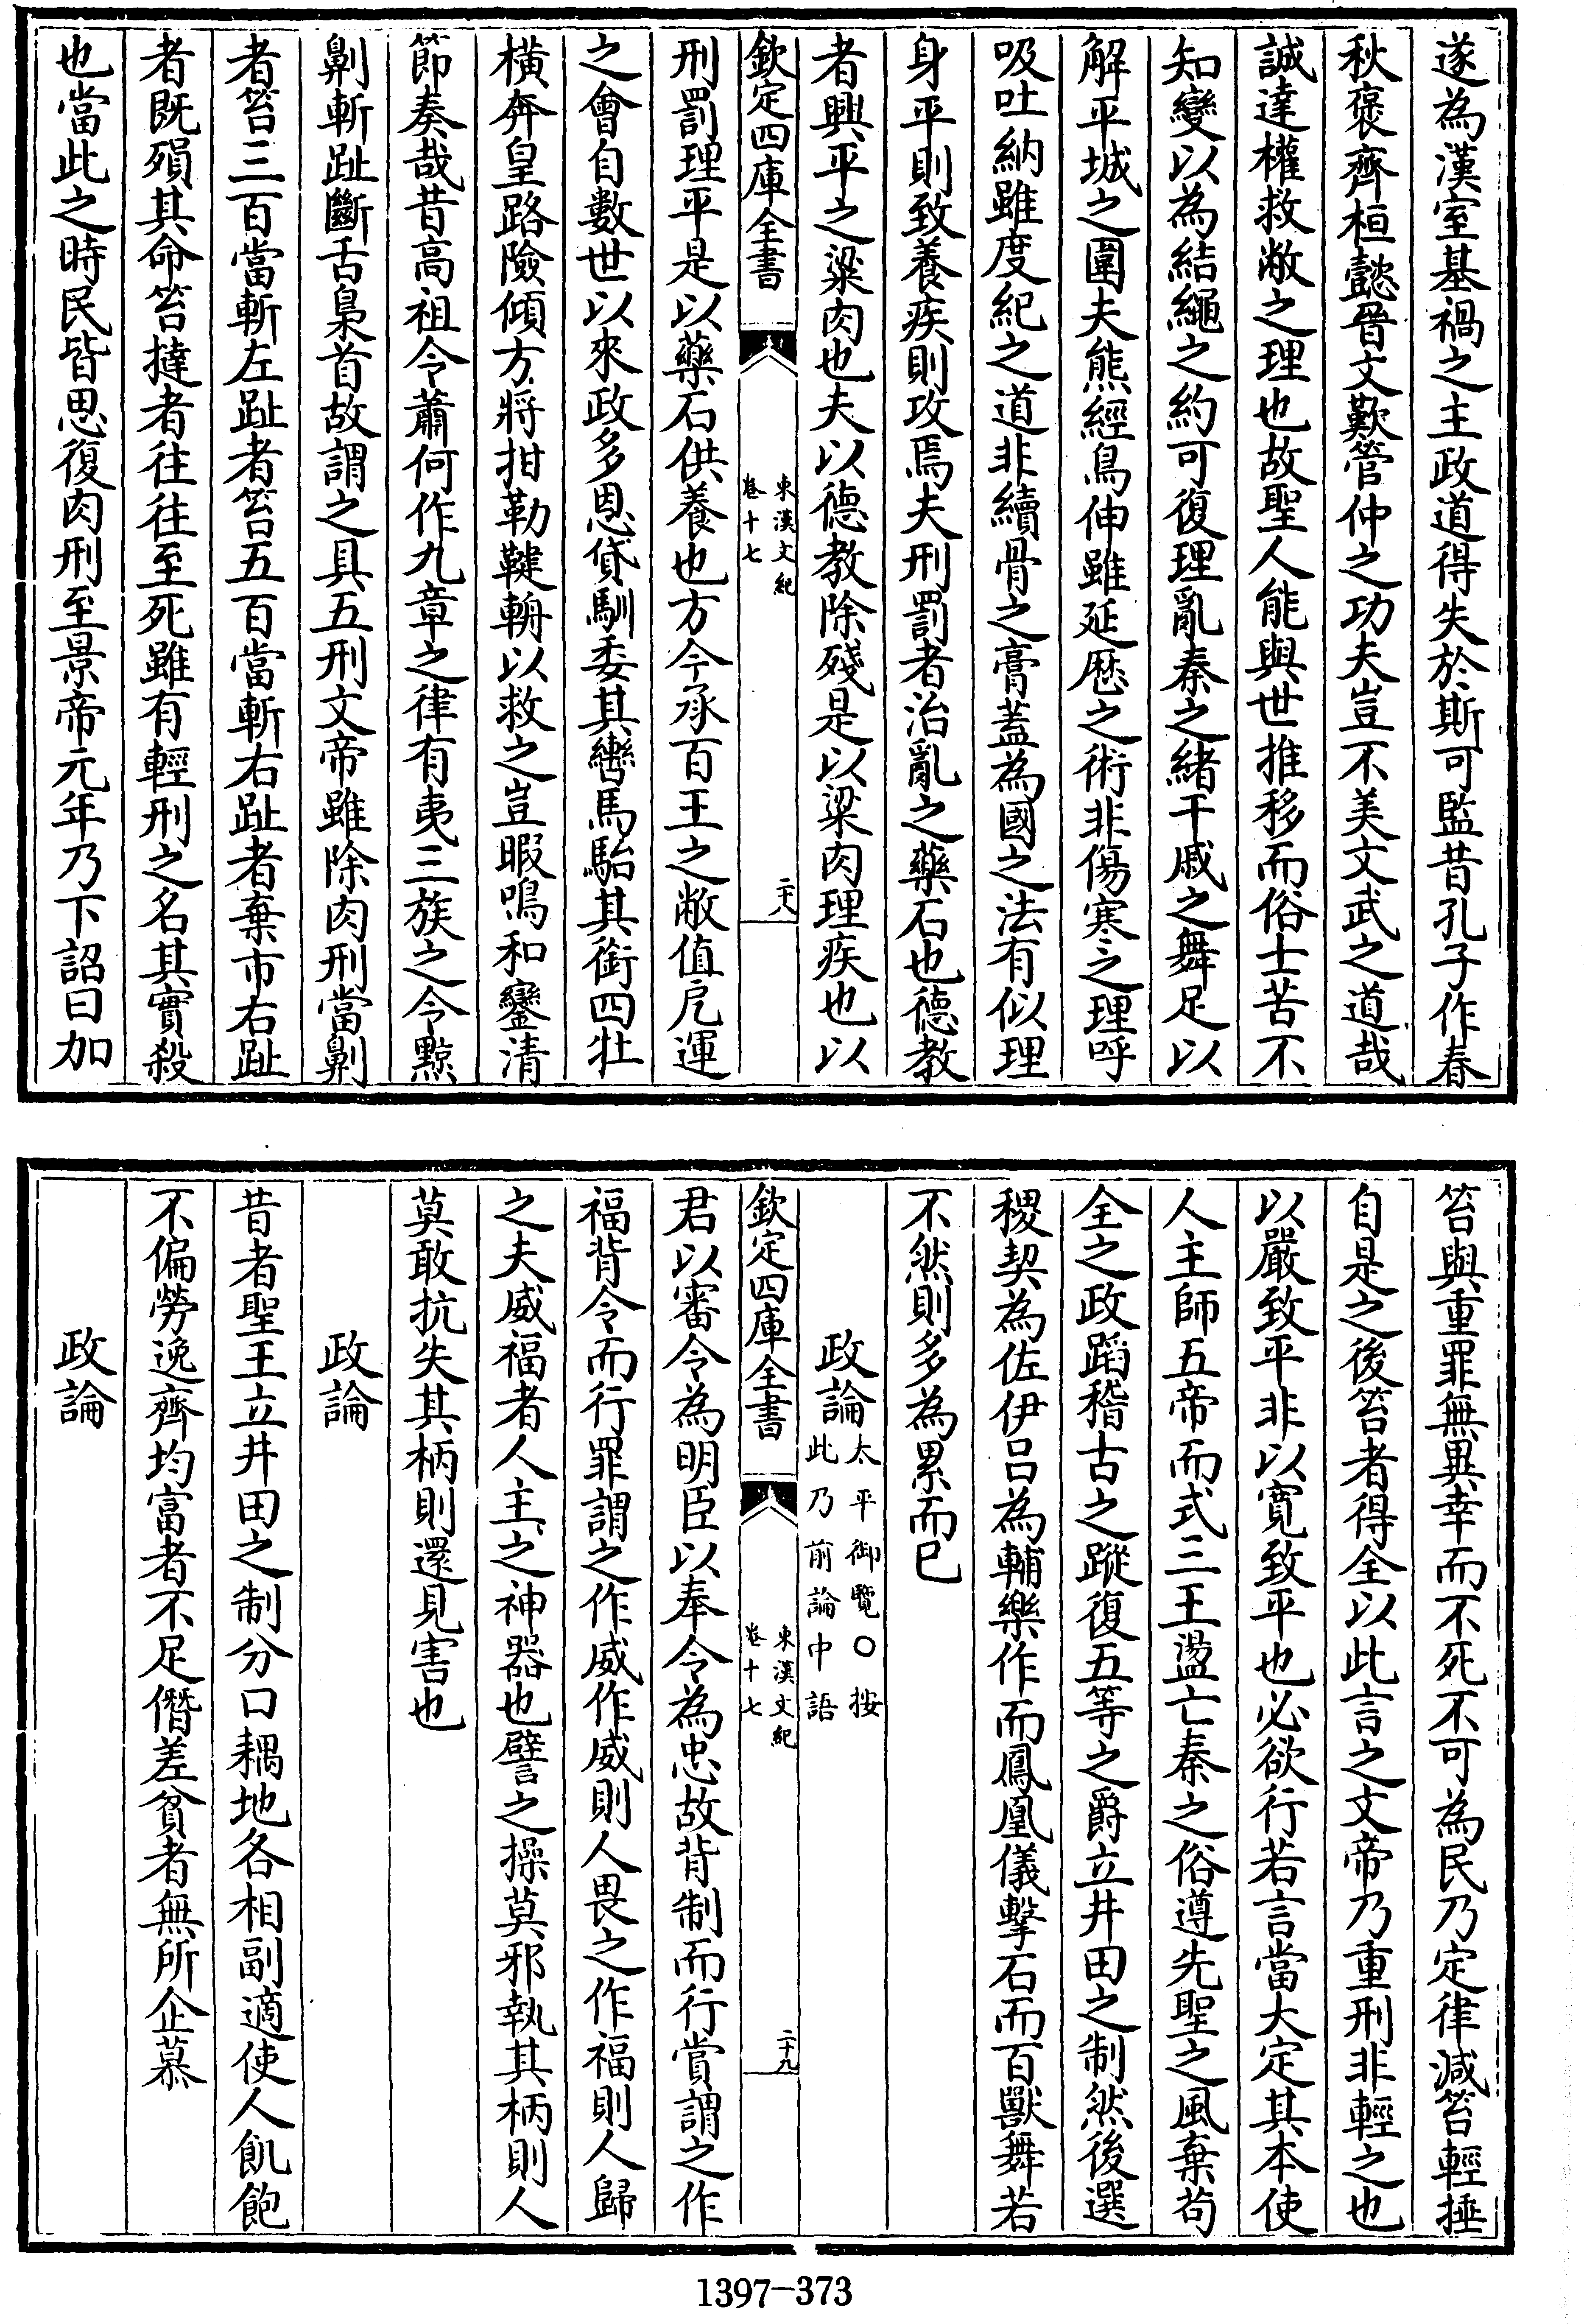 遂為漢室基禍之主政道得失於斯可監昔孔子作春
秋褒齊桓懿晉文歎管仲之功夫豈不美文武之道哉
誠達權救敝之理也故聖人能與世推移而俗士苦不
知變以為結繩之約可復理亂秦之緒干戚之舞足以
解平城之圍夫熊經鳥伸雖延歷之術非傷寒之理呼
吸吐納雖度紀之道非續骨之膏蓋為國之法有似理
身平則致養疾則攻焉夫刑罰者治亂之藥石也德教
者興平之粱肉也夫以德教除殘是以粱肉理疾也以
欽定四庫全書
東漢文紀
卷十七
二十八
刑罰理平是以藥石供養也方今承百王之敝值戹運
之會自數世以來政多恩貸馴委其轡馬駘其銜四牡
橫奔皇路險傾方將拑勒鞬輈以救之豈暇鳴和鑾清
節奏哉昔高祖令蕭何作九章之律有夷三族之令黥
劓斬趾斷舌梟首故謂之具五刑文帝雖除肉刑當劓
者笞三百當斬左趾者笞五百當斬右趾者棄市右趾
者既殞其命笞撻者往往至死雖有輕刑之名其實殺
也當此之時民皆思復肉刑至景帝元年乃下詔曰加
笞與重罪無異幸而不死不可為民乃定律減笞輕捶
自是之後笞者得全以此言之文帝乃重刑非輕之也
以嚴致平非以寬致平也必欲行若言當大定其本使
人主師五帝而式三王盪亡秦之俗遵先聖之風棄苟
全之政蹈稽古之蹤復五等之爵立井田之制然後選
稷契為佐伊呂為輔樂作而鳳凰儀擊石而百獸舞若
不然則多為累而已
政論太平御覽○按
此乃前論中語
欽定四庫全書
東漢文紀
卷十七
二十九
君以審令為明臣以奉令為忠故背制而行賞謂之作
福背令而行罪謂之作威作威則人畏之作福則人歸
之夫威福者人主之神器也譬之操莫邪執其柄則人
莫敢抗失其柄則還見害也
政論
昔者聖王立井田之制分口耦地各相副適使人飢飽
不偏勞逸齊均富者不足僭差貧者無所企慕
政論
1397-373